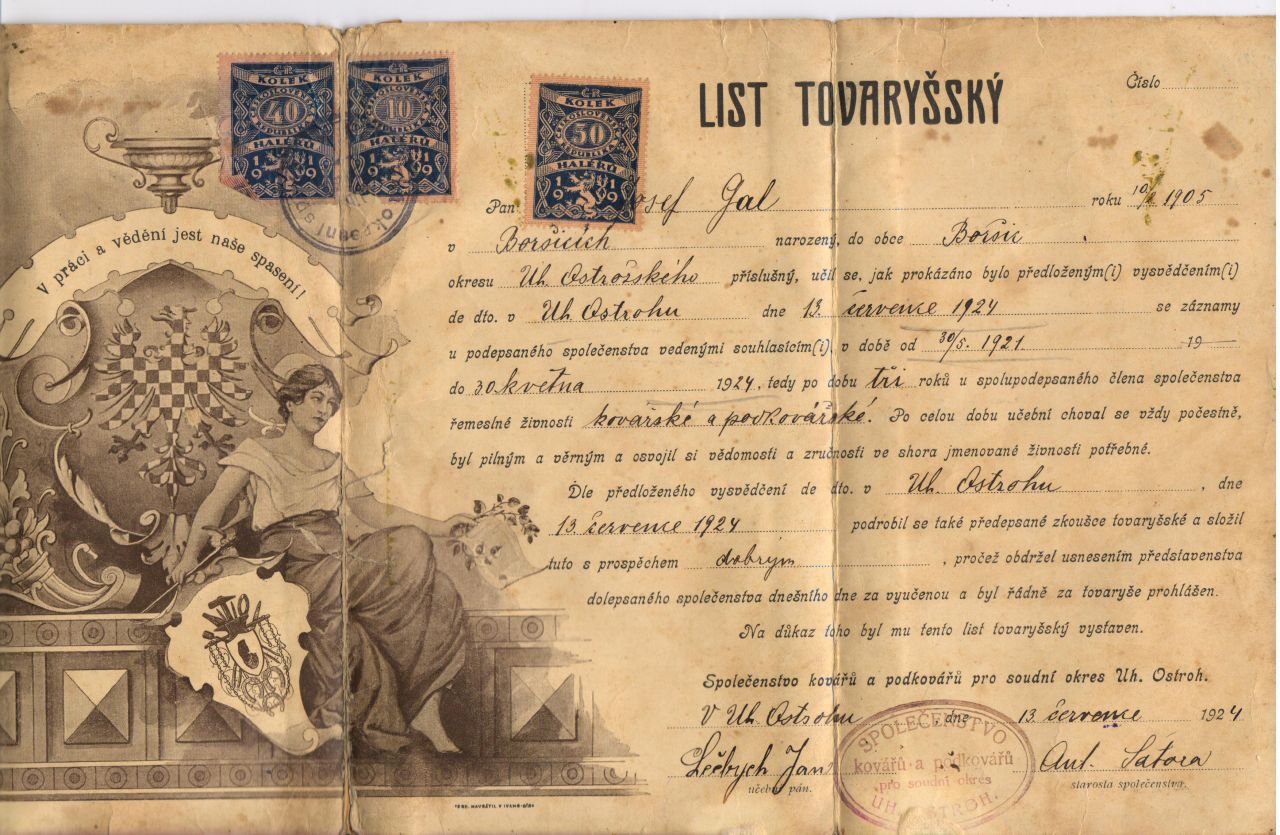 LIST TOVARYŠSKÝ
Číslo
ČR
KOLEK
40
HALÉŘŮ
1919
ČR
KOLEK
10
HALÉŘŮ
1919
ČR
KOLEK
50
HALÉŘŮ
1919
V práci a vědění jest naše spasení!
Pan osef Gal roku 1905
v Boršicích narozený, do obce Boršic
okresu Uh. Ostrožského příslušný, učil se, jak prokázáno bylo předloženým(i) vysvědčením(i)
de dto. v Uh. Ostrohu dne 13. července 1924 se záznamy
u podepsaného společenstva vedenými souhlasícím(i), v době od 30/5. 1921. 19
do 30. května 1924, tedy po dobu tří roků u spolupodepsaného člena společenstva
řemeslné živnosti kovářské a podkovářské. Po celou dobu učební choval se vždy počestně,
byl pilným a věrným a osvojil si vědomosti a zručnosti ve shora jmenované živnosti potřebné.
Dle předloženého vysvědčení de dto. v Uh. Ostrohu, dne
13 července 1924 podrobil se také předepsané zkoušce tovaryšské a složil
tuto s prospěchem dobrým, pročež obdržel usnesením představenstva
dolepsaného společenstva dnešního dne za vyučenou a byl řádně za tovaryše prohlášen.
Na důkaz toho byl mu tento list tovaryšský vystaven.
Společenstvo kovářů a podkovářů pro soudní okres Uh. Ostroh.
V Uh. Ostrohu dne 13 července 1924
Jan
učební pán.
SPOLEČENSTVO
kovářů a podkovářů
pro soudní okres
UH. OSTROH.
Ant. Šátora
starosta společenstva.